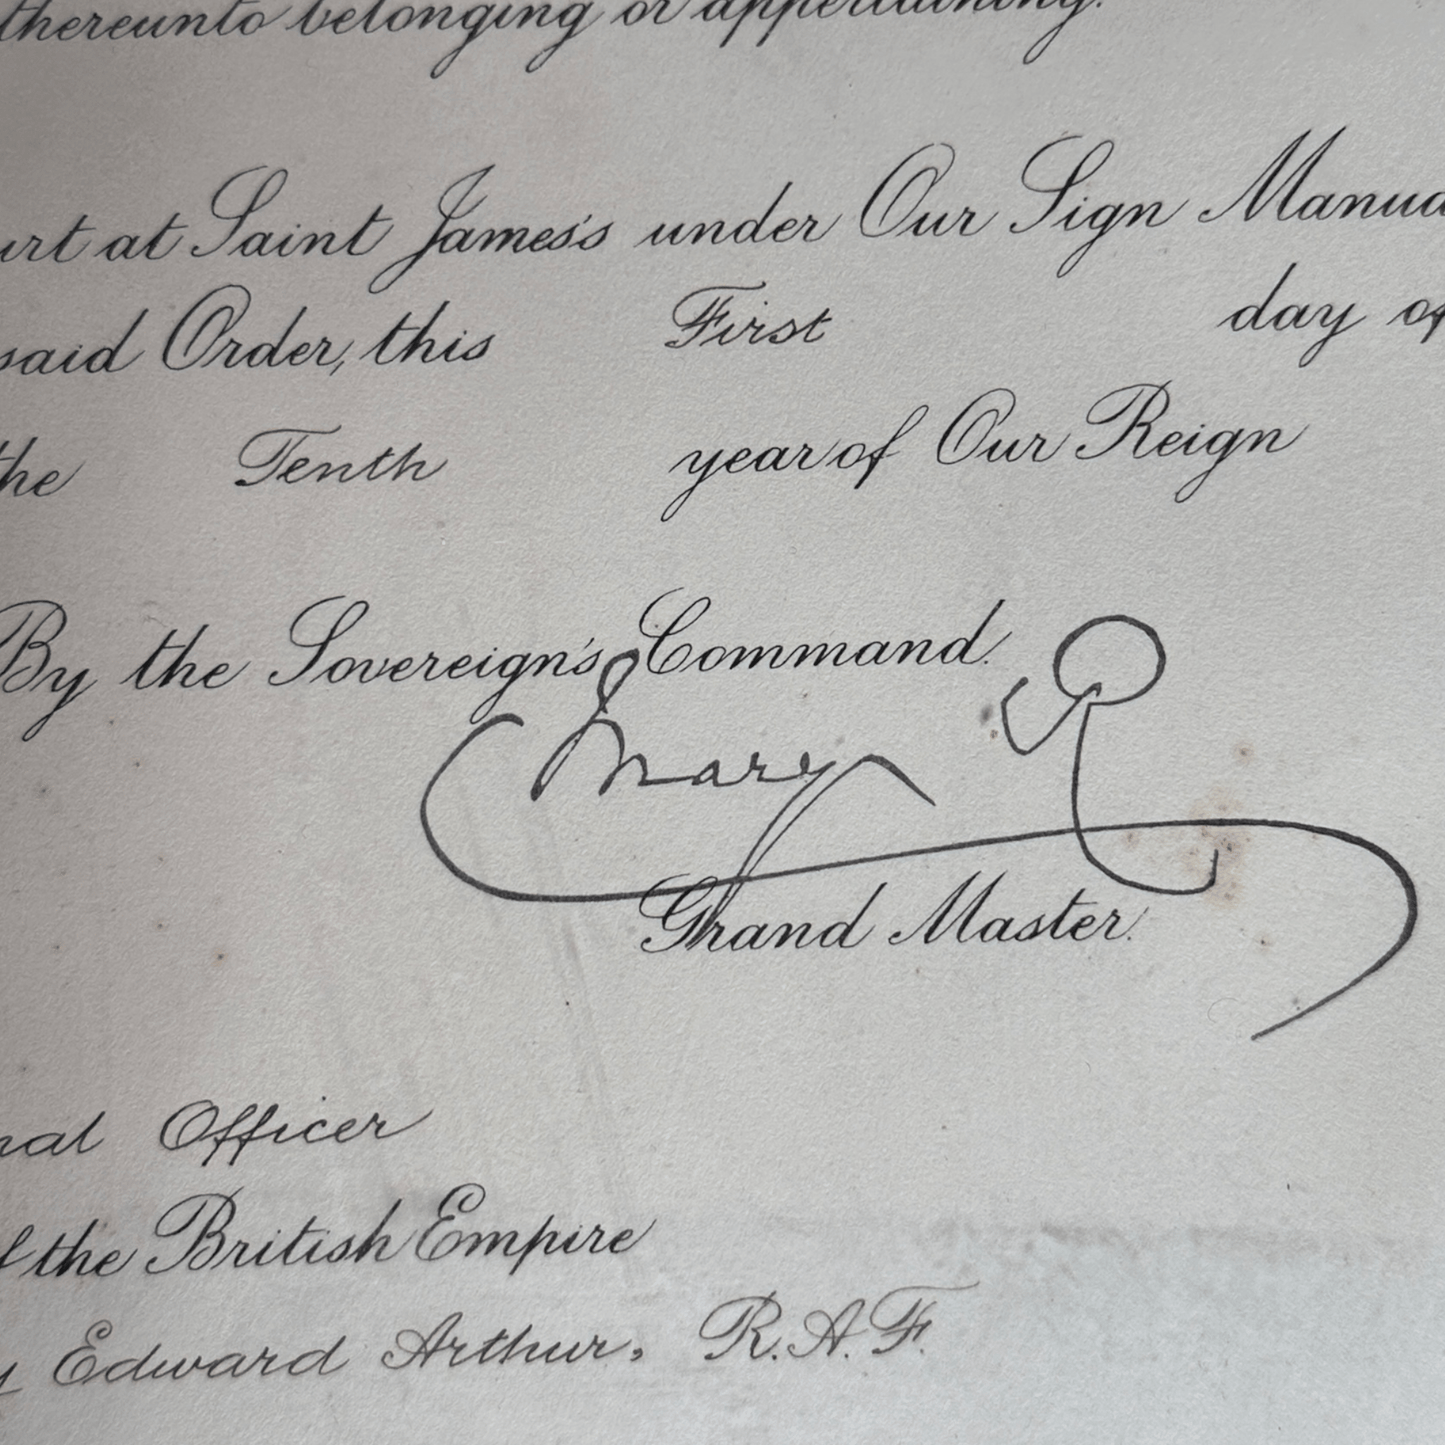 thereunto belonging or appertaining.
urt at Saint James's under Our Sign Manua
said Order, this First day of
the Tenth year of Our Reign
By the Sovereign's Command.
Mary R
Grand Master.
nal Officer
f the British Empire
y Edward Arthur, R.A.F.